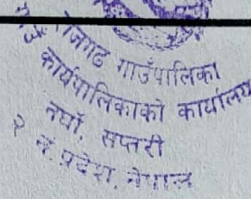 राजगढ गाउँपालिका
गाउँ कार्यपालिकाको कार्यालय
नर्घो, सप्तरी
२ नं. प्रदेश, नेपाल